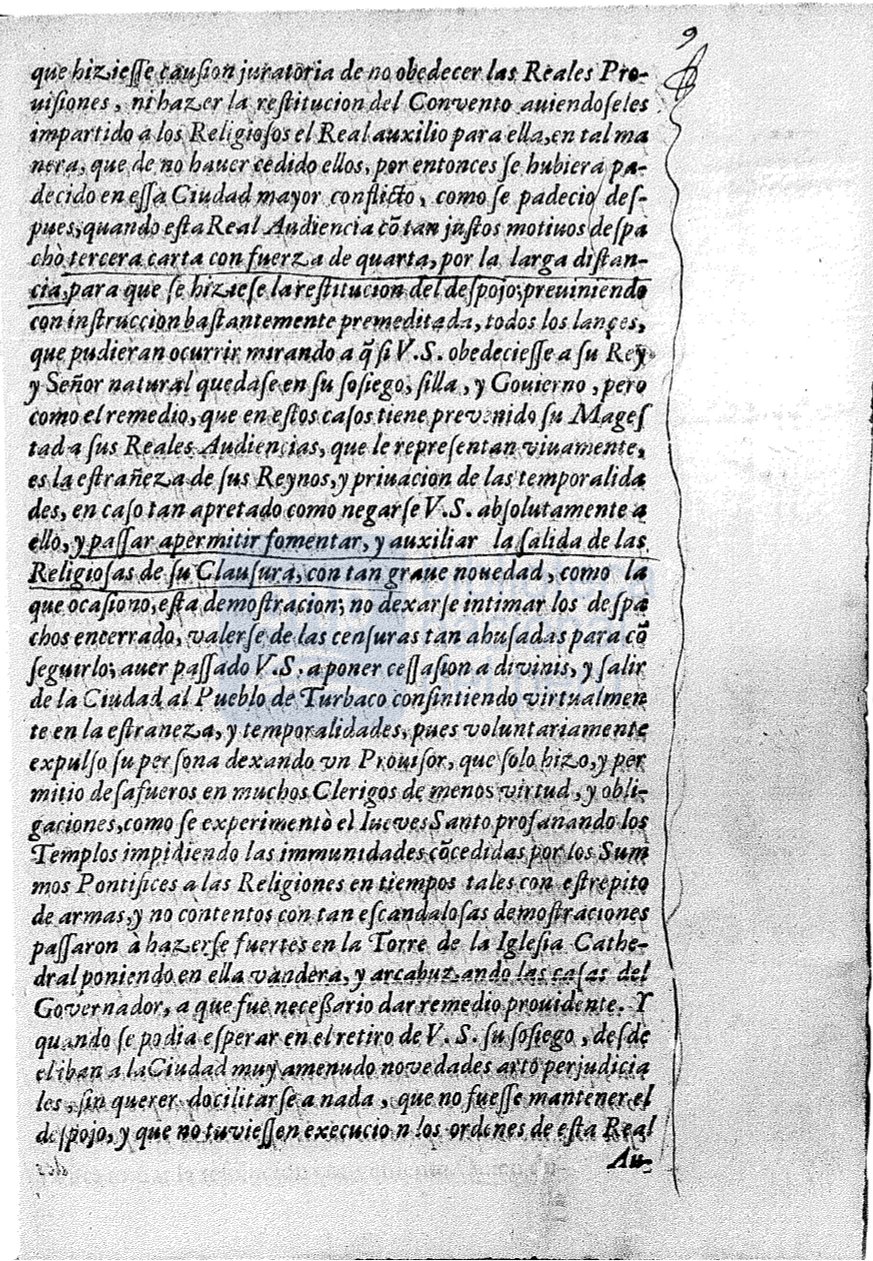 9
que hizieſſe cauſion juratoria de no obedecer las Reales Pro-
uiſiones, ni hazer la reſtitucion del Convento auiendoſeles
impartido a los Religioſos el Real auxilio para ella, en tal ma
nera, que de no hauer cedido ellos, por entonces ſe hubiera pa-
decido en eſſa Ciudad mayor conflicto, como ſe padecio deſ-
pues, quando eſta Real Audiencia cõ tan juſtos motiuos deſpa
chò tercera carta con fuerza de quarta, por la larga diſtan-
cia, para que ſe hizieſe la reſtitucion del deſpojo, preuiniendo
con inſtruccion baſtantemente premeditada, todos los lançes,
que pudieran ocurrir mirando a q̃ ſi V.S. obedecieſſe a ſu Rey
y Señor natural quedaſe en ſu ſoſiego, ſilla, y Gouierno, pero
como el remedio, que en eſtos caſos tiene prevenido ſu Mageſ
tad a ſus Reales Audiencias, que le repreſentan viuamente,
es la eſtrañeza de ſus Reynos, y priuacion de las temporalida
des, en caſo tan apretado como negarſe V.S. abſolutamente a
ello, y paſſar a permitir fomentar, y auxiliar la ſalida de las
Religioſas de ſu Clauſura, con tan graue nouedad, como la
que ocaſiono, eſta demoſtracion; no dexarſe intimar los deſpa
chos encerrado, valerſe de las cenſuras tan abuſadas para cõ
ſeguirlo; auer paſſado V.S. a poner ceſſaſion a divinis, y ſalir
de la Ciudad al Pueblo de Turbaco conſintiendo virtualmen
te en la eſtraneza, y temporalidades, pues voluntariamente
expulſo ſu perſona dexando vn Prouiſor, que ſolo hizo, y per
mitio deſafueros en muchos Clerigos de menos virtud, y obli-
gaciones, como ſe experimentò el Iueves Santo profanando los
Templos impidiendo las immunidades cõcedidas por los Sum
mos Pontifices a las Religiones en tiempos tales con eſtrepito
de armas, y no contentos con tan eſcandaloſas demoſtraciones
paſſaron à hazerſe fuertes en la Torre de la Igleſia Cathe-
dral poniendo en ella vandera, y arcabuzando las caſas del
Governador, a que fue neceßario dar remedio prouidente. Y
quando ſe podia eſperar en el retiro de V.S. ſu ſoſiego, deſde
el iban a la Ciudad muy amenudo novedades arto perjudicia
les, ſin querer docilitarſe a nada, que no fueſſe mantener el
deſpojo, y que no tuvieſſen execucio n los ordenes de eſta Real
Au-